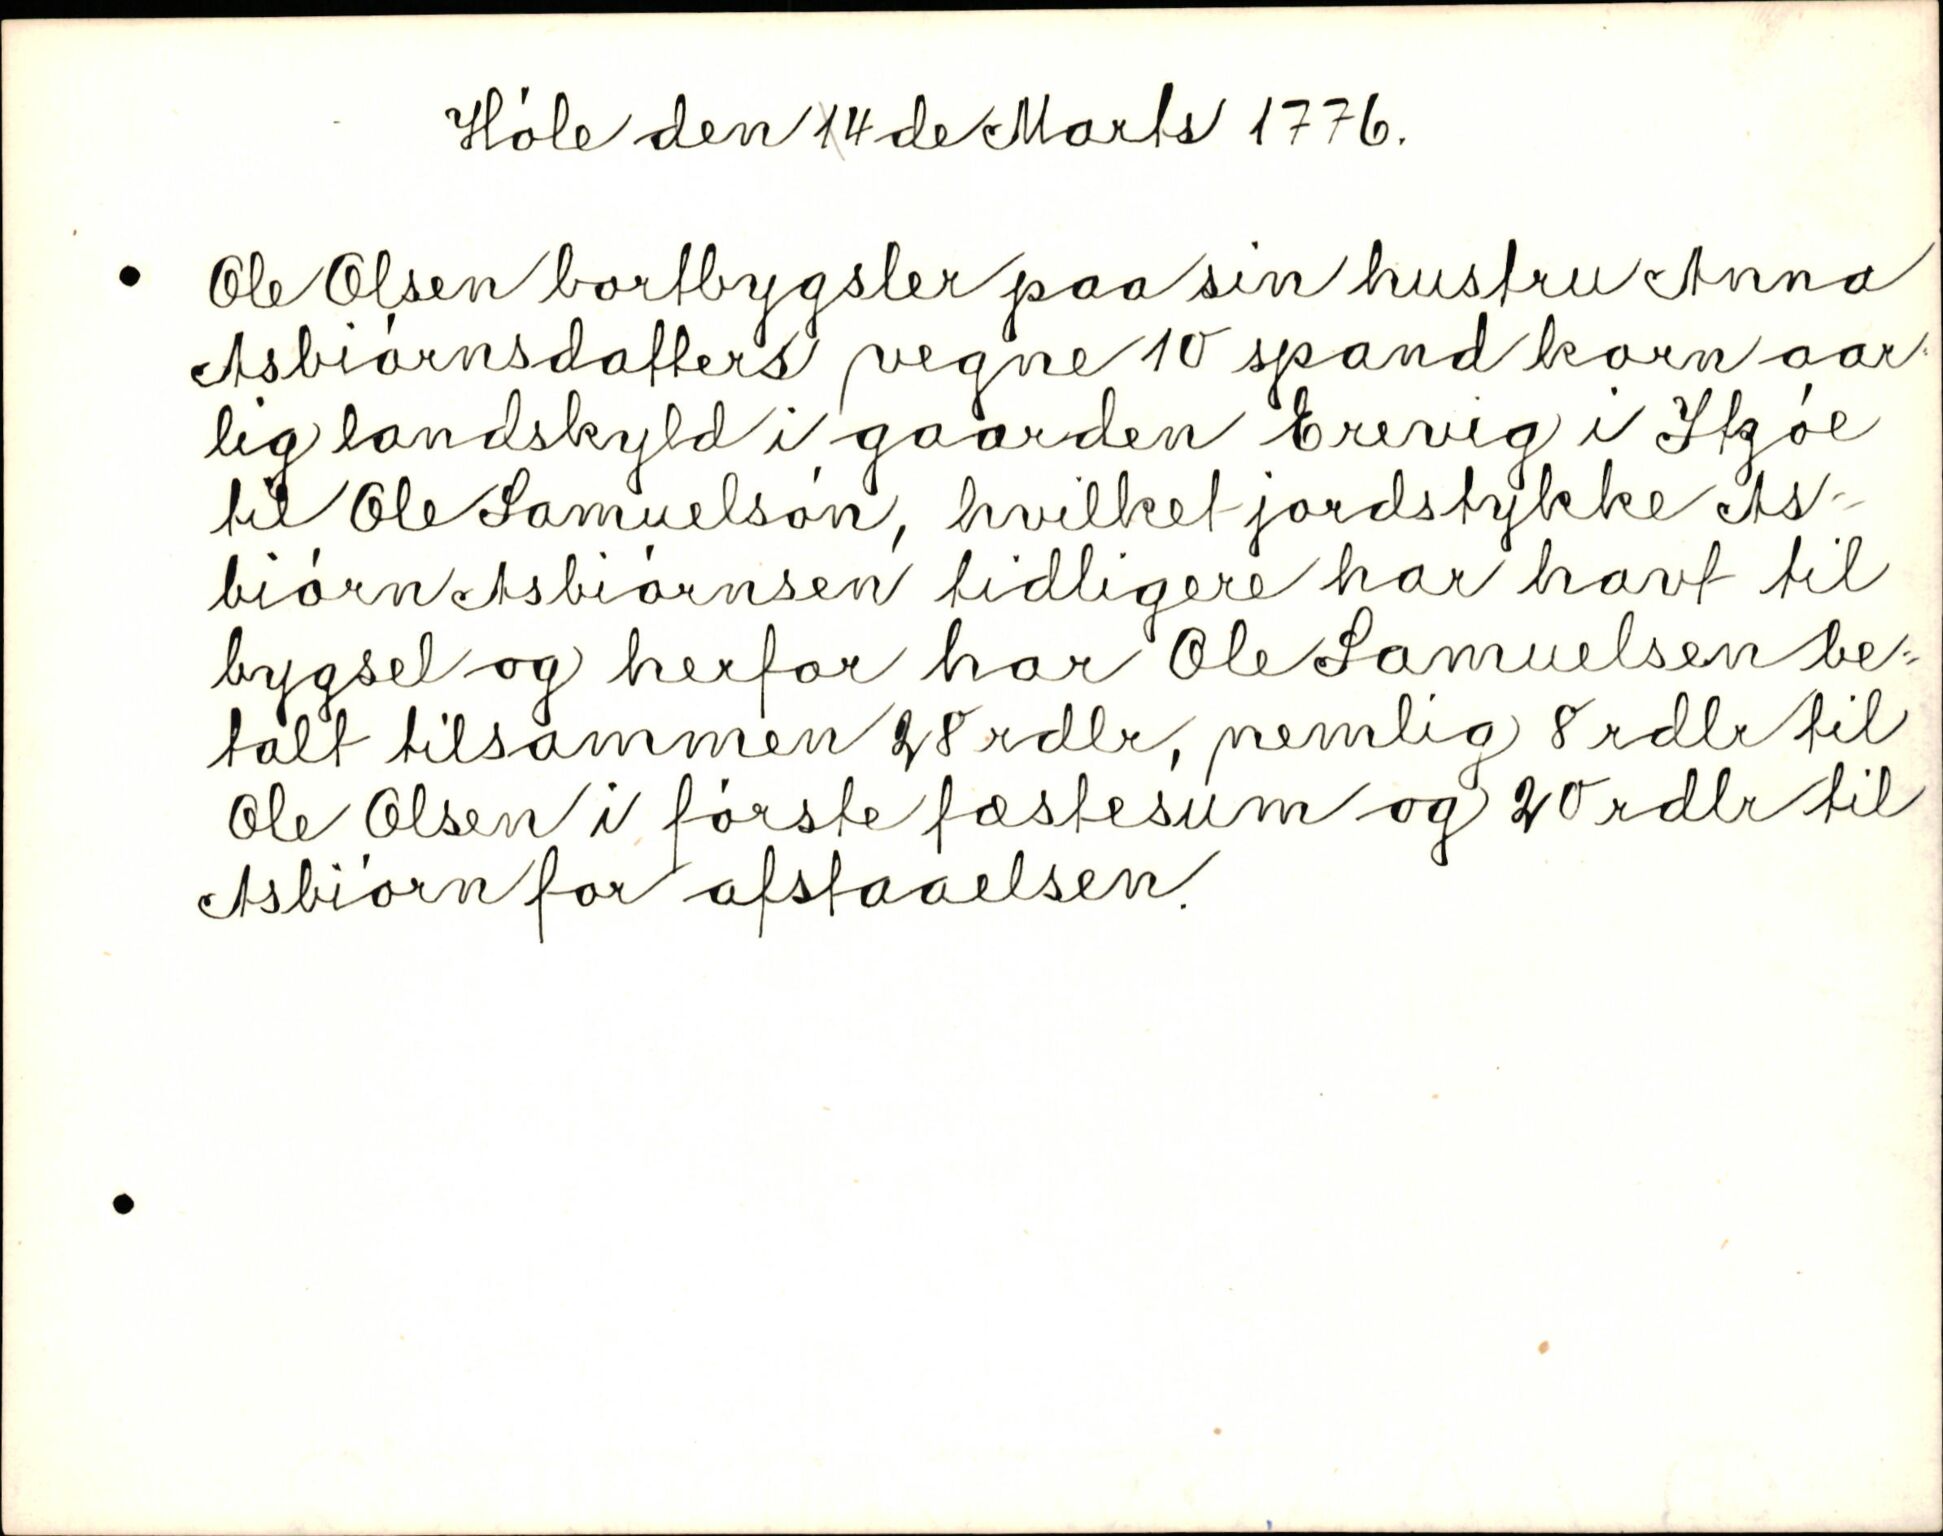 Hóle den 14de Marts 1776.
Ole Olsen bortbygsler paa sin hustru Anna
Asbiórnsdatters vegne 10 spand korn aar-
lig landskyld i gaarden Erevig i
til Ole Samuelsón, hvilket jordstykke As-
biórn Asbiórnsen tidligere har havt til
bygsel og herfor har Ole Samuelsen be-
talt tilsammen 28 rdlr, nemlig 8 rdlr til
Ole Olsen i fórste fæstesum og 20 rdlr til
Asbiórn for afstaaelsen.